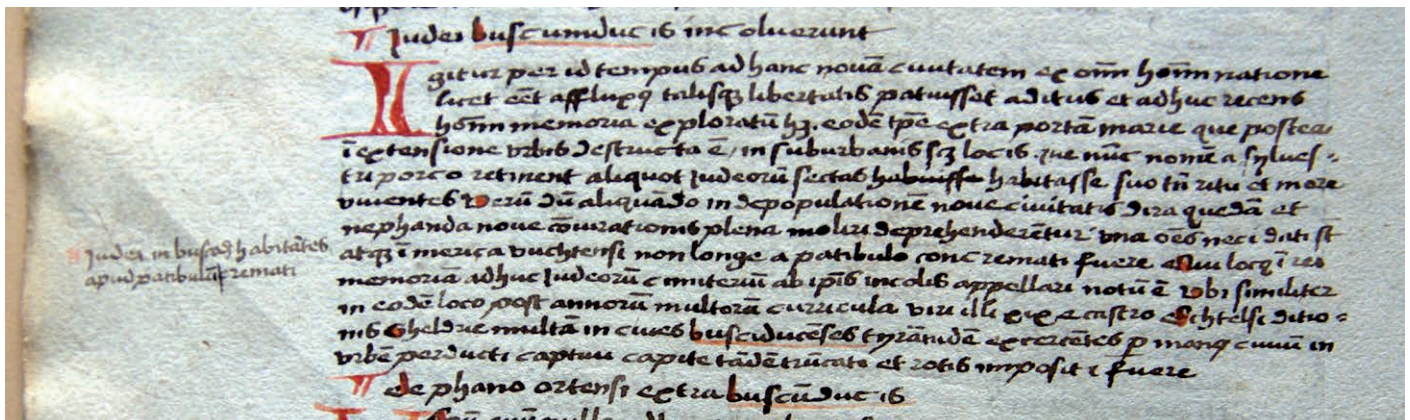 ¶ Iudei buscumducis incoluerunt
Igitur per id tempus ad hanc nouā ciuitatem ex omī homī natione
licet eēt affluxq talisq libertatis patuisset aditus et adhuc recens
homī memoria exploratū hʒ. eodē tp̄e extra portā marie que postea
ī extensione vrbis destructa ē / in suburbanis scʒ locis. que nūc nomē a sylues-
tri porco retinent aliquot Iudeorū sectas habuisse habitasse suo tn̄ ritu et more
viuentes Verū dū aliquādo in depopulationē noue ciuitatis dira quedā et
nephanda noue cōiurationis plena moliri deprehenderētur vna oēs neci dati sūt
atqʒ ī merica vuchtensi non longe a patibulo concremati fuere Qui locq ī rei
memoriā adhuc Iudeorū cimiteriū ab ip̄is incolis appellari notū ē Vbi similiter
in eodē loco post annorū multorū curricula viri illi xix e castro Echtelsi ditio-
nis Gheldrie multā in ciues busciducēses tyrānidē excercētes p manq ciuiū in
vrbē perducti captiui capite tādē trūcati et rotis impositi fuere
¶ de phano ortensi extra buscūducis
¶ Iudei in buscod habitātes
apud patibulū cremati